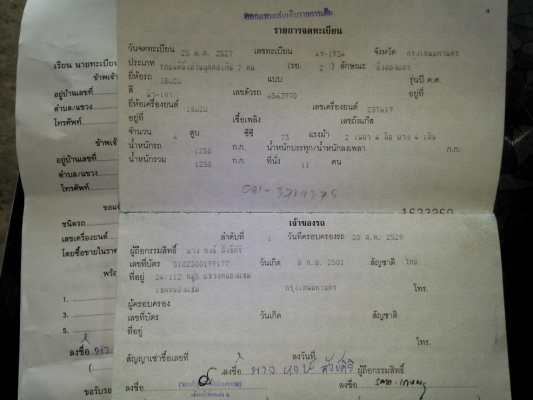 รายการจดทะเบียน
วันจดทะเบียน 25 ต.ค. 2527 เลขทะเบียน 9ร-1934 จังหวัด กรุงเทพมหานคร
ประเภท รถยนต์นั่งส่วนบุคคลเกิน 7 คน (รย. 2) ลักษณะ นั่งสองแถว
ยี่ห้อรถ ISUZU แบบ รุ่นปี ค.ศ.
สี เลขตัวรถ 6563970 อยู่ที่
ยี่ห้อเครื่องยนต์ ISUZU เลขเครื่องยนต์ 237619
อยู่ที่ เชื้อเพลิง เลขถังแก๊ส
จำนวน 4 สูบ ซีซี 73 แรงม้า 2 เพลา 4 ล้อ ยาง 4 เส้น
น้ำหนักรถ 1250 ก.ก. น้ำหนักบรรทุก/น้ำหนักลงเพลา ก.ก.
น้ำหนักรวม 1250 ก.ก. ที่นั่ง 11 คน
เจ้าของรถ
ลำดับที่ 1 วันที่ครอบครองรถ 20 ต.ค. 2529
ผู้ถือกรรมสิทธิ์ นาง
เลขที่บัตร 3102300199177 วันเกิด 6 ก.ย. 2501 สัญชาติ ไทย
ที่อยู่ 24/112 หมู่5 แขวงหนองแขม
เขตหนองแขม กรุงเทพมหานคร โทร.
ผู้ครอบครอง
เลขที่บัตร วันเกิด สัญชาติ
ที่อยู่ โทร.
สัญญาเช่าซื้อเลขที่ ลงวันที่
ลงชื่อ ผู้ถือกรรมสิทธิ์
ลงชื่อ
เรียน นายทะเบียน
ข้าพเจ้า
อยู่บ้านเลขที่
ตำบล/แขวง
โทรศัพท์
ข้าพเจ้า
อยู่บ้านเลขที่
ตำบล/แขวง
โทรศัพท์
ขอแจ้ง
ชนิดรถ
เลขเครื่องยนต์
โดยซื้อขายในราคา
พร้อ
1.
3.
5.
ลงชื่อ
ขอรับรอ